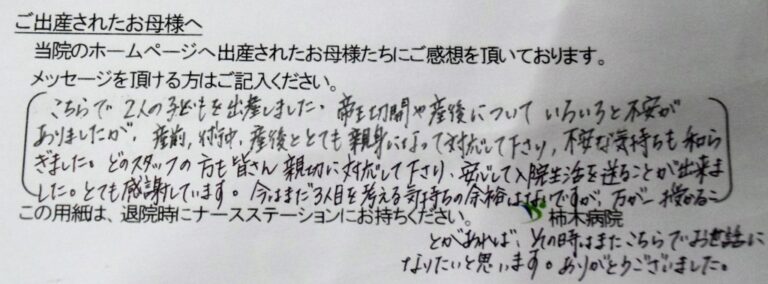 ご出産されたお母様へ
当院のホームページへ出産されたお母様たちにご感想を頂いております。
メッセージを頂ける方はご記入ください。
こちらで2人の子どもを出産しました。帝王切開や産後についていろいろと不安が
ありましたが、産前、術中、産後ととても親身になって対応して下さり、不安な気持ちも和ら
ぎました。どのスタッフの方も皆さん親切に対応して下さり、安心して入院生活を送ることが出来ま
した。とても感謝しています。今はまだ3人目を考える気持ちの余裕はないですが、万が一授かるこ
この用紙は、退院時にナースステーションにお持ちください。 柿木病院
とがあれば、その時はまたこちらでお世話に
なりたいと思います。ありがとうございました。